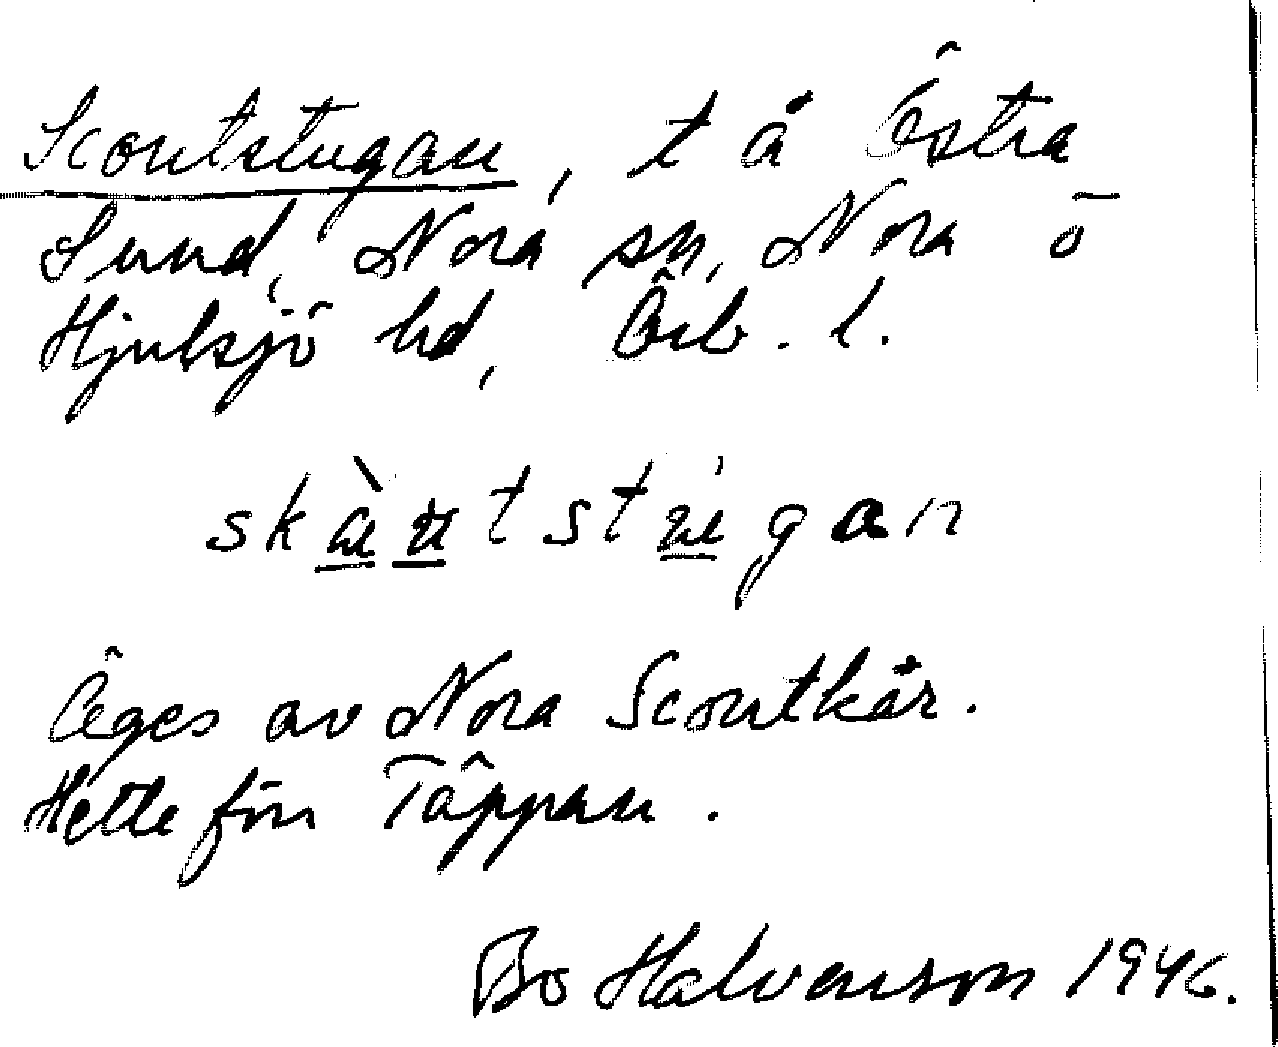 Scoutstugan, t å Östra
Sund, Nora sn, Nora o
Hjulsjö hd, Örb. l.
skàutstúgan
Äges av Nora Scoutkår.
Hette förr Täppan.
Bo Halvarson 1946.